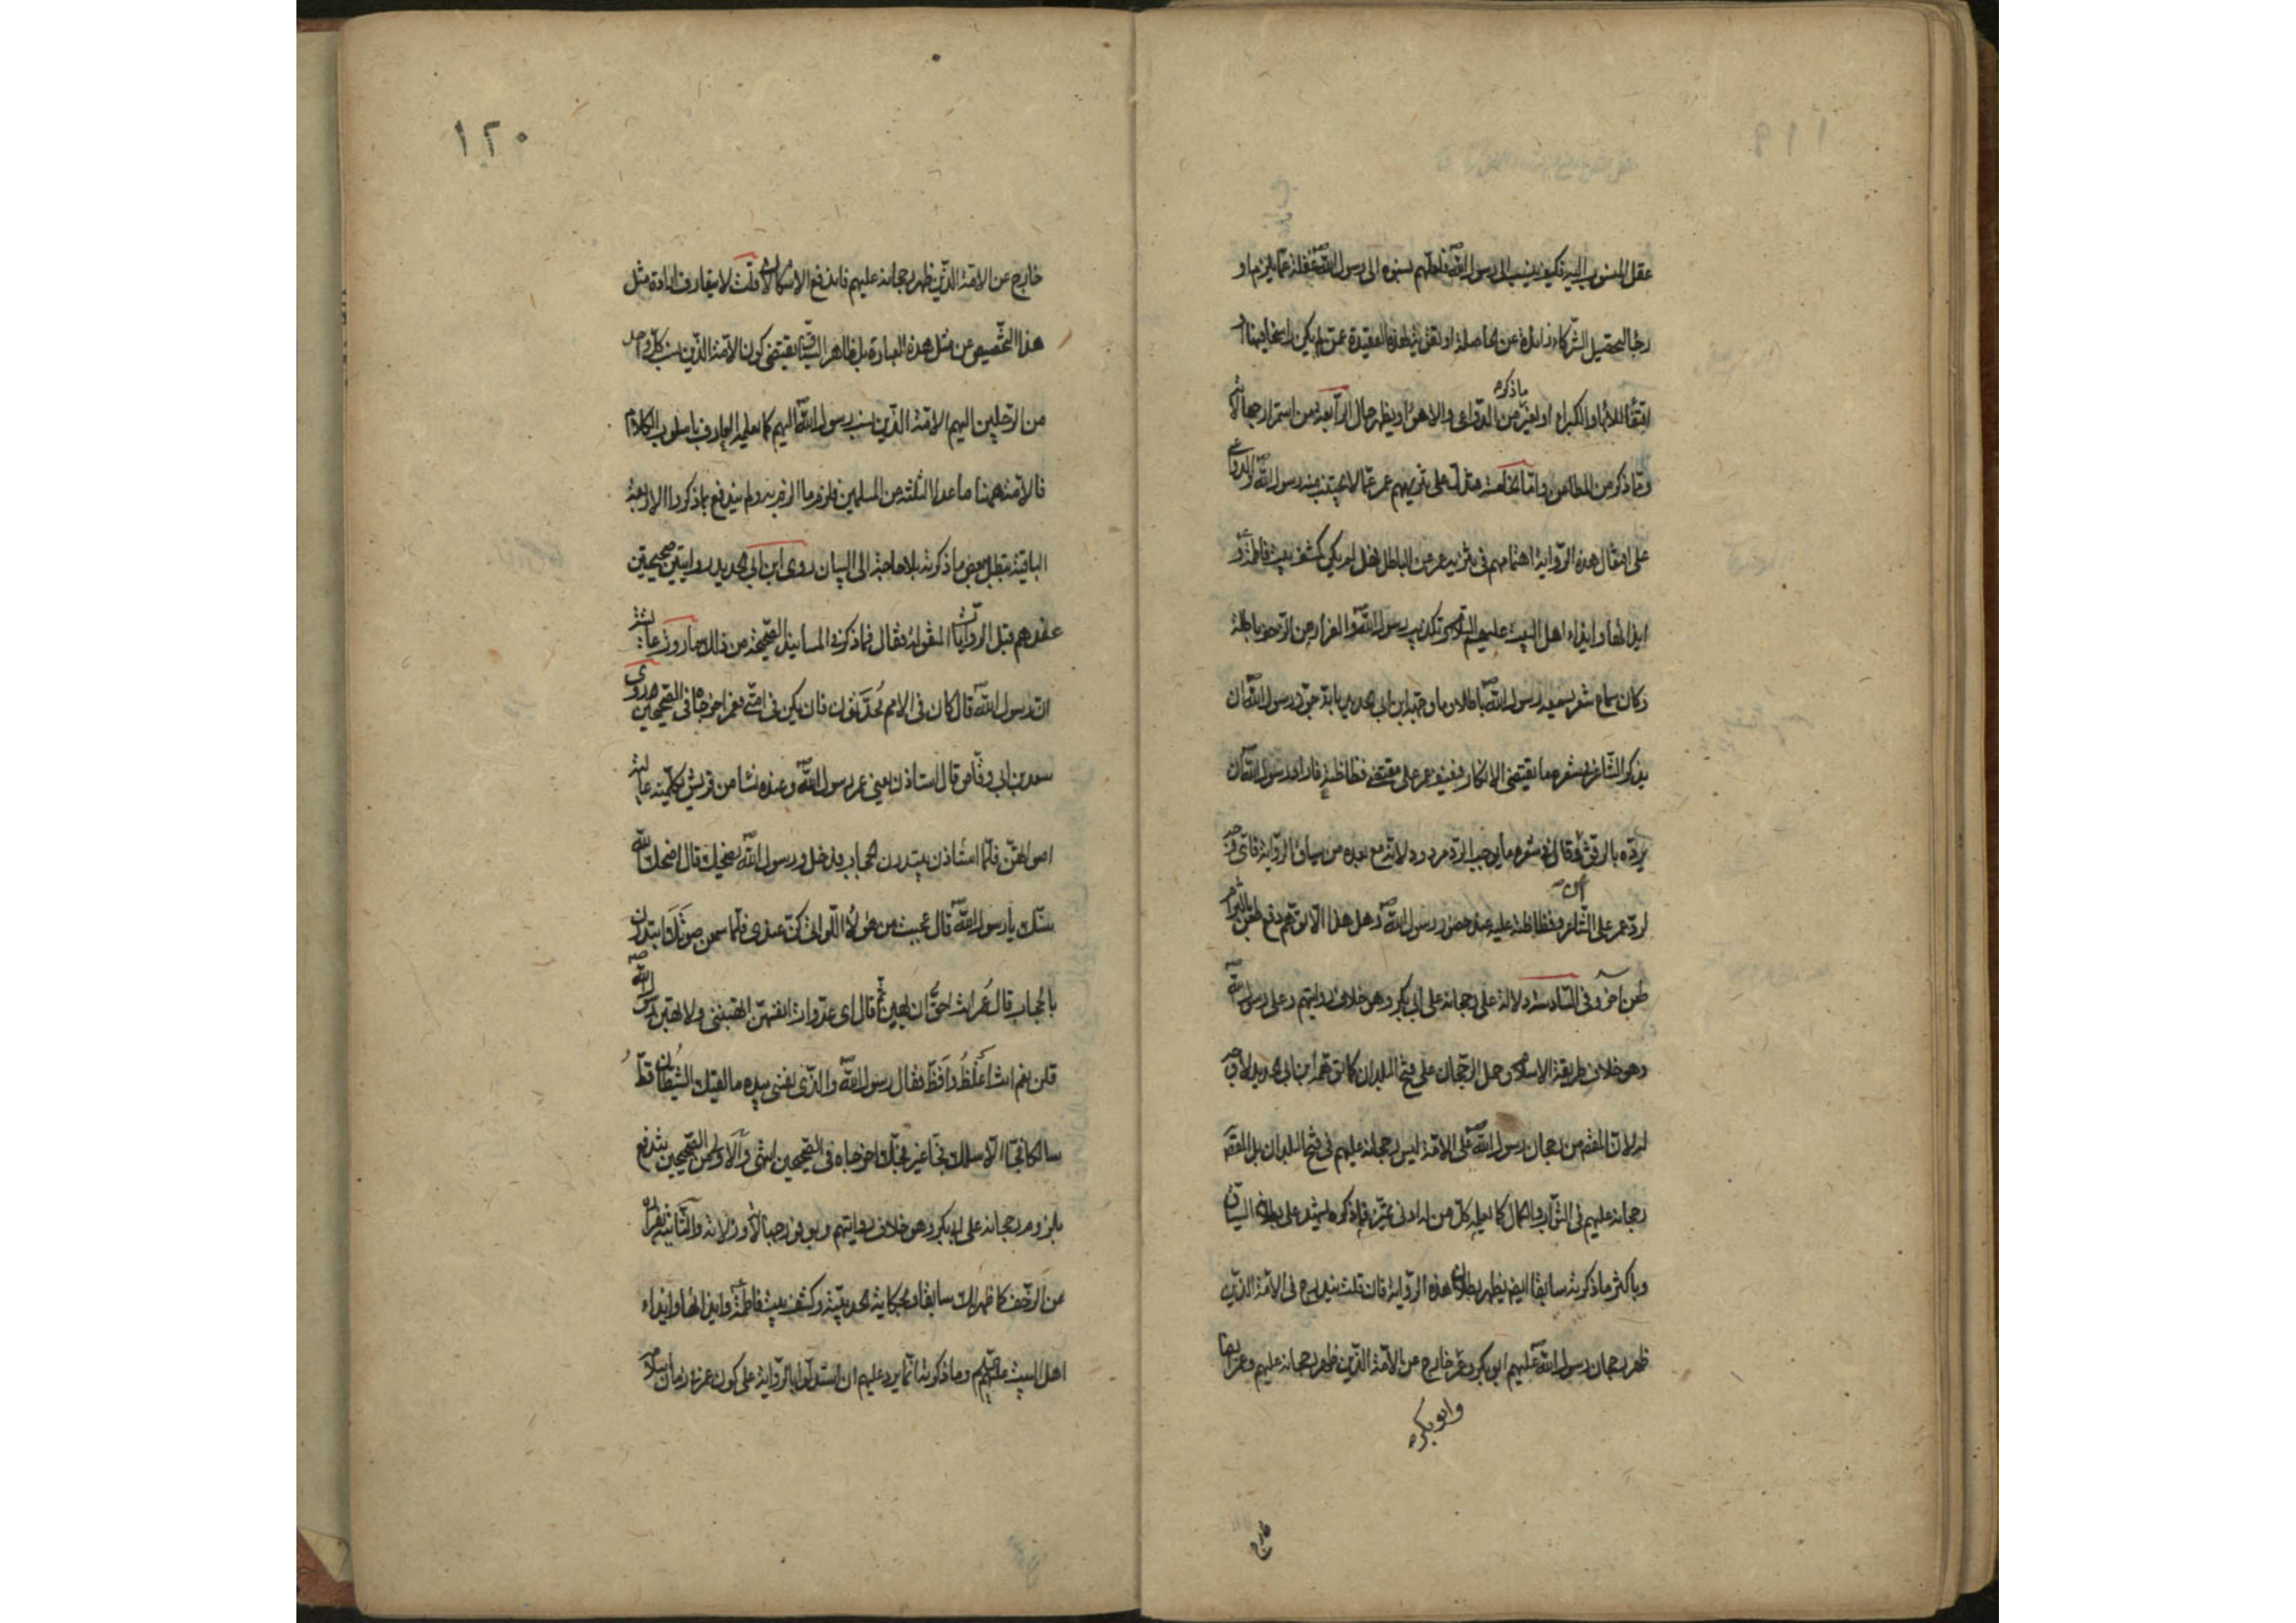 عقل المنسوب اليه فكيف ينسب الى رسول الله ص فلعلهم نسبوه الى رسول الله ص غفلة عما يلزمها و
ربما لتحصيل الشركاء زائدة عن الحاصلة او لتقريب هذه العقيدة عمن لم يكن راسخا فيها
اقتفاء للاباء والكبراء او لغير ما ذكره من الدواعى والاهواء ويظهر حال الرابعة من استمرار
وما ذكر من المطاعن واما الخامسة على تنزيههم عمر عما لا يجتنب منه رسول الله ص والدواعى
على افتعال هذه الرواية اهتمامهم فى تنزيه عمر من الباطل فهل لم يكن كشف بيت فاطمة ع و
ايذائها وايذاء اهل البيت عليهم السلام وتكذيب رسول الله ص والفرار من الزحف باطلة
وكان سماع شعر يسمعه رسول الله ص باطلا وما وجهه ابن ابى الحديد بانه جوز رسول الله ص ان
يذكر الشاعر فى شعره ما يقتضى الانكار فيعنف عمر على مقتضى فظاظته فاراد رسول الله ص ان
يرده بالرفق لو قال فى شعره ما يوجب الرد مردود لانه مع بعده من سياق الرواية فاى
لرد عمر على الشاعر وفظاظته عليه عند حضور رسول الله ص وهل هذا الا توهم دفع طعن بالتزام
طعن اخر وفى السادسة دلالة على رجحانه على ابى بكر وهو خلاف روايتهم وعلى رسول الله ص
وهو خلاف طريقة الاسلام وحمل الرجحان على فتح البلدان كما توهمه ابن ابى الحديد لا وجه
له لان المفهوم من رجحان رسول الله ص على الامة ليس رجحانه عليهم فى فتح البلدان بل المفهوم
رجحانه عليهم فى الثواب والكمال كما يعلمه كل من له ادنى تميز فما ذكره ليشهد على بطلانه السياق
وباكثر ما ذكرته سابقا ايضا يظهر بطلان هذه الرواية فان قلت يندرج فى الامة الذين
ظهر رجحان رسول الله ص عليهم ابو بكر وعمر خارج عن الامة الذين ظهر رجحانه عليهم وعمر ايضا
وابو بكره
خارج
١٢٠
خارج عن الامة الذين ظهر رجحانه عليهم فاندفع الاشكالان قلت لا يتعارف ارادة مثل
هذا التخصيص من مثل هذه العبارة بل ظاهر السياق يقتضى كون الامة الذين نسب كل واحد
من الرجلين اليهم الامة الذين نسب رسول الله ص اليهم كما يعلمه العارف باسلوب الكلام
فالامة ههنا ما عدا الثلثة من المسلمين فلزم ما الزم به ولم يندفع بما ذكر والاربعة
الباقية تبطل ببعض ما ذكرته بلا حاجة الى البيان روى ابن ابى الحديد روايتين صحيحتين
عندهم قبل الروايات المنقولة فقال فما ذكرته المسانيد الصحيحة من ذلك ما روت عائشة
ان رسول الله ص قال كان فى الامم مُحدَّثون فان يكن فى امتى فعمر اخرجاه فى الصحيحين وروى
سعد بن ابى وقاص قال استاذن يعنى عمر رسول الله ص وعنده نساء من قريش يكلمنه عالية
اصواتهن فلما استاذن يبتدرن الحجاب فدخل ورسول الله ص يضحك قال اضحك الله
سنك يا رسول الله ص قال عجبت من هؤلاء اللواتى كن عندى فلما سمعن صوتك ابتدرن
بالحجاب قال عمر انت احق ان يهبن ثم قال اى عدوات انفسهن اتهبننى ولا تهبن رسول الله ص
قلن نعم انت اَغْلَظُ واَفَظُّ فقال رسول الله ص والذى نفسى بيده ما لقيك الشيطان قطّ
سالكا فجا الا سلك فجا غير فجك اخرجاه فى الصحيحين انتهى والاول من الصحيحين يندفع
بلزوم رجحانه على ابى بكر وهو خلاف روايتهم وبوفور جهالاته وزلاته والثانية بفراره
من الزحف كما ظهر لك سابقا وبحكاية الحديبية وكشف بيت فاطمة ع وايذائها وايذاء
اهل البيت عليهم السلام وما ذكرته انما يرد عليهم ان استدلوا بالرواية على كون عمر فى زمان